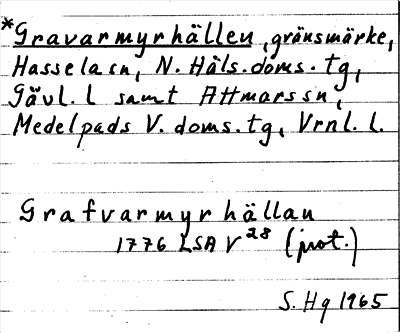 *Gravarmyrhällen, gränsmärke,
Hassela sn, N. Häls. doms. tg,
Gävl. l samt Attmars sn,
Medelpads V. doms. tg, Vrnl. l.
Grafvarmyrhällan
1776 LSA V28 (prot.)
S. Hg 1965